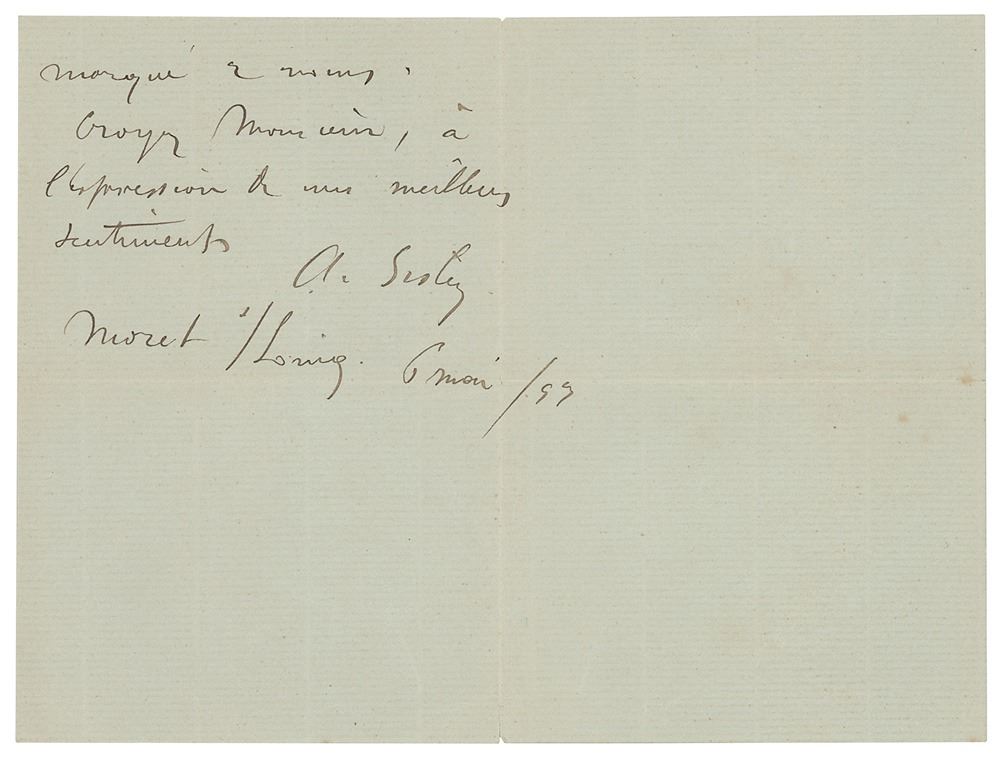 marqué
Croyez Monsieur, à
l'expression de mes meilleurs
sentiments
A. Sisley
Moret s/Loing. 6 mai /93